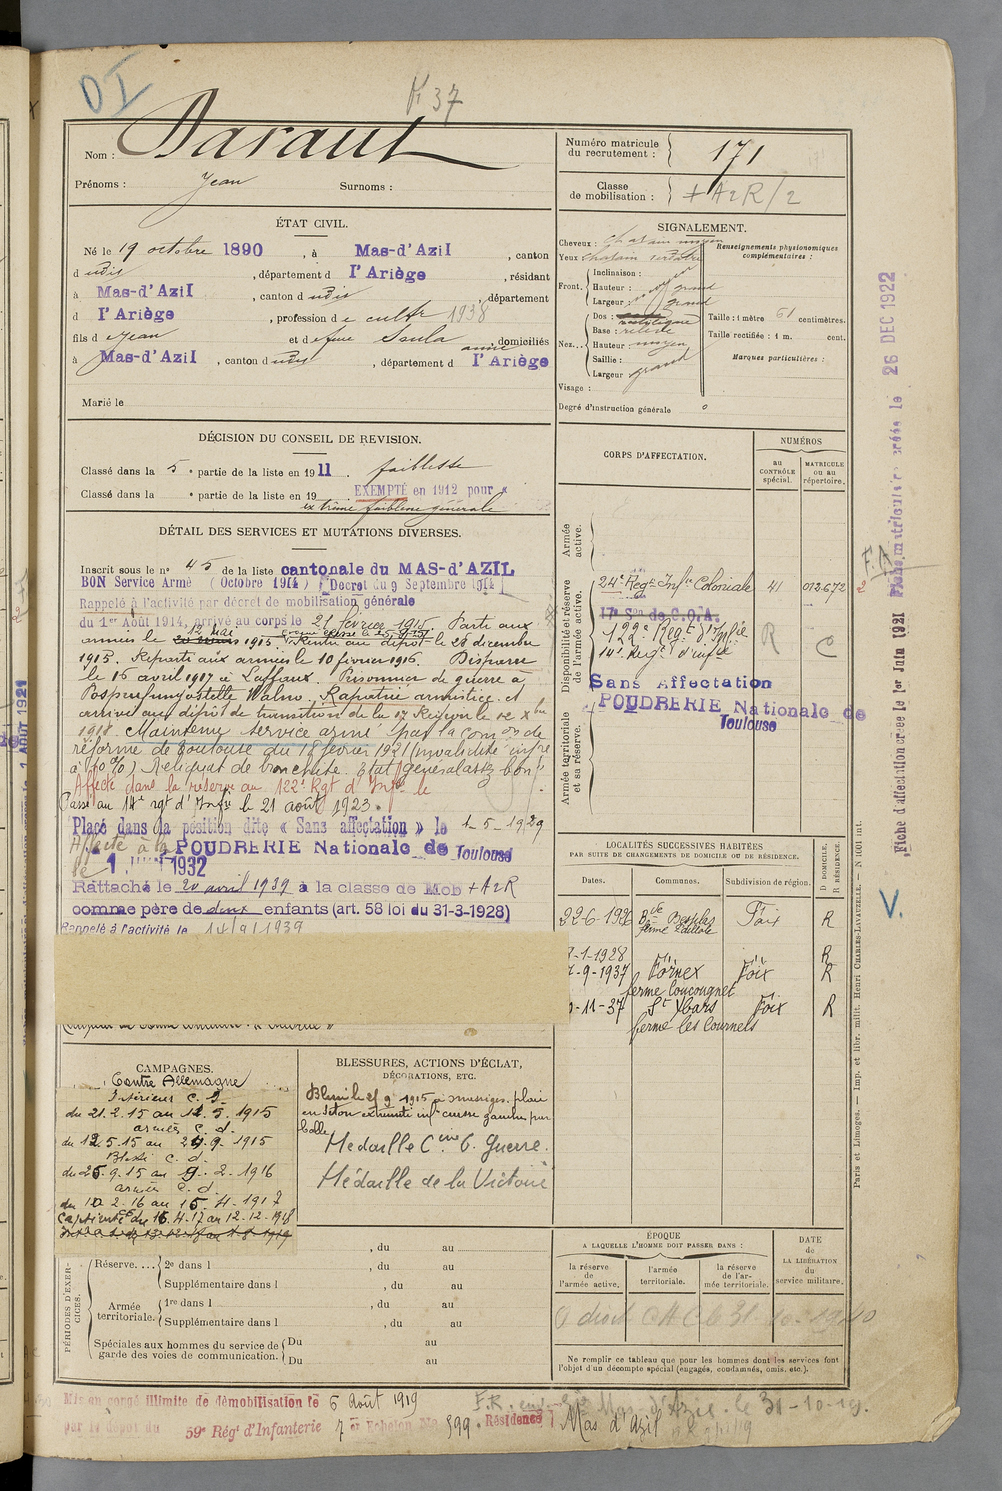 DI
R 37
Nom : Daraut
Prénoms : Jean Surnoms :
Numéro matricule du recrutement : 171
Classe de mobilisation : + A2R/2
ÉTAT CIVIL.
Né le 19 octobre 1890, à Mas-d'Azil, canton
d udit, département d l'Ariège, résidant
à Mas-d'Azil, canton d udit, département
d l'Ariège, profession de cultr 1938
fils d e Jean et de feue Saula Annie domiciliés
à Mas-d'Azil, canton d udit, département d l'Ariège
Marié le
SIGNALEMENT.
Cheveux : châtain moyen
Yeux châtain verdâtre
Front. Inclinaison :
Hauteur : grand
Largeur : grand
Nez... Dos : rectiligne
Base : relevée
Hauteur moyen
Saillie :
Largeur grand
Visage :
Renseignements physionomiques complémentaires :
Taille : 1 mètre 61 centimètres.
Taille rectifiée : 1 m. cent.
Marques particulières :
Degré d'instruction générale
DÉCISION DU CONSEIL DE REVISION.
Classé dans la 5e partie de la liste en 1911. faiblesse
Classé dans la e partie de la liste en 19 EXEMPTÉ en 1912 pour «
extrême faiblesse générale
DÉTAIL DES SERVICES ET MUTATIONS DIVERSES.
Inscrit sous le n° 45 de la liste cantonale du MAS-d'AZIL
BON Service Armé (Octobre 1914) (Decret du 9 Septembre 1914)
Rappelé à l'activité par décret de mobilisation générale
du 1er Août 1914, arrivé au corps le 21 février 1915. Parti aux
armées le 12 mai 1915. Rentré au dépôt le 28 décembre
1915. Reparti aux armées le 10 février 1916. Disparu
le 16 avril 1917 à Laffaux. Prisonnier de guerre à
Rapatrié armistice et
arrivé au dépôt de transition de la 17 Région le 12 Xbre
1918. Maintenu service armé par la Comon de
réforme de Toulouse du 18 février 1921 (invalidité infre
à 10 %) Reliquat de bronchite. Etat général assez bon.
Affecté dans la réserve au 122e Rgt d'Infie le
Passé au 14e rgt d'Infie le 21 août 1923.
Placé dans la position dite « Sans affectation » le 1-5-1929
Affecté à la POUDRERIE Nationale de Toulouse
le 1 JUIN 1932
Rattaché le 20 avril 1939 à la classe de Mob + A2R
comme père de deux enfants (art. 58 loi du 31-3-1928)
Rappelé à l'activité le 14/9/1939
CORPS D'AFFECTATION.
NUMÉROS
au CONTRÔLE spécial.
MATRICULE ou au répertoire.
Armée active.
Disponibilité et réserve de l'armée active.
24e Regt Infie Coloniale 41 012.672
17e Son de C.O.A.
122e Regt d'Infie R C
14e Regt d'infie
Sans Affectation
POUDRERIE Nationale de
Toulouse
Armée territoriale et sa réserve.
LOCALITÉS SUCCESSIVES HABITÉES
PAR SUITE DE CHANGEMENTS DE DOMICILE OU DE RÉSIDENCE.
Dates. Communes. Subdivision de région. D DOMICILE, R RÉSIDENCE.
22-6-1926 Foix R
-1-1928 " " R
-9-1937 Fornex Foix R
ferme Coucougnet
-11-37 St Ybars Foix R
ferme les Cournels
CAMPAGNES.
Contre Allemagne
Intérieur C. S.
du 21.2.15 au 11.5.1915
armées C. d.
du 12.5.15 au 24.9.1915
Blessé C. d.
du 25.9.15 au 9.2.1916
armées C. d.
du 10.2.16 au 15.4.1917
Captivité du 16.4.17 au 12.12.1918
BLESSURES, ACTIONS D'ÉCLAT,
DÉCORATIONS, ETC.
Blessé le 25 9 1915 à Souain, plaie
en séton extrémité infre cuisse gauche par
balle
Médaille Cive G. Guerre.
Médaille de la Victoire
PÉRIODES D'EXERCICES.
, du au
Réserve.... 2e dans l , du au
Supplémentaire dans l , du au
Armée territoriale. 1re dans l , du au
Supplémentaire dans l , du au
Spéciales aux hommes du service de garde des voies de communication. Du au
Du au
ÉPOQUE
A LAQUELLE L'HOMME DOIT PASSER DANS :
la réserve de l'armée active.
l'armée territoriale.
la réserve de l'armée territoriale.
DATE de LA LIBÉRATION du service militaire.
Ne remplir ce tableau que pour les hommes dont les services font l'objet d'un décompte spécial (engagés, condamnés, omis, etc.).
Mis en congé illimité de démobilisation le 5 août 1919
par le dépôt du 59e Régt d'Infanterie 7e Echelon No 599. Résidence Mas d'Azil
Mas-d'Azil le 31-10-19.
Fiche d'affectation créée le 1er Juin 1921 Fiche matriculaire créée le 26 DEC 1922
F.A
V.
Paris et Limoges. — Imp. et libr. milit. Henri CHARLES-LAVAUZELLE. — N 1001 int.
1 AOUT 1921